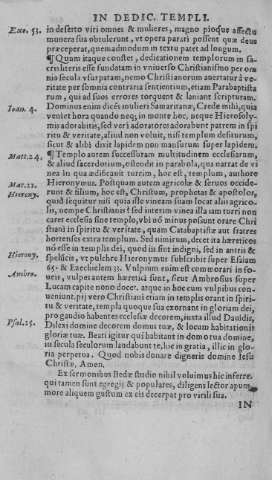 IN DEDIC. TEMPLI.
Exo. 35. in deserto viri omnes & mulieres, magno pioque affectu
munera sua obtulerunt, vt opera parari possent quæ deus
præceperat, quemadmodum in textu patet ad longum.
¶ Quum itaque constet, dedicationem templorum in sa-
cris literis esse fundatam in vniuerso Christianismo per om
nia secula vsurpatam, nemo Christianorum auertatur à ve
ritate per somnia contraria sentientium, etiam Parabaptista
rum, qui ad suos errores torquent & laniant scripturam.
Ioan. 4. Dominus enim dicēs mulieri Samaritanæ, Crede mihi, quia
veniet hora quando neq; in monte hoc, neque Hierosoly-
mis adorabitis, sed veri adoratores adorabunt patrem in spi
ritu & veritate, aliud non voluit, nisi templum destruendum,
sicut & alibi dixit lapidem non mansurum super lapidem,
Matt.24. ¶ Templo autem successuram multitudinem ecclesiarum,
& aliud sacerdotium, ostendit in parabola, qua narrat de vi
nea in qua ædificauit turrim, hoc est, templum, authore
Mat.21. Hieronymus. Postquam autem agricolæ & seruos occide-
Hierony. runt & filium, hoc est, Christum, prophetas & apostolos,
quod sequitur nisi quia iste vineam suam locat alijs agrico-
lis, nempe Christianis? sed interim vinea illa iam turri non
caret ecclesiæ siue templo, vbi ad minus possunt orare Chri
stiani in spiritu & veritate, quam Catabaptistæ aut fratres
hortenses extra templum. Sed nimirum, decet ita hæreticos
nō esse in templis dei, quod ijs sint indigni, sed in antris &
Hierony. speluncis, vt pulchre Hieronymus subscribit super Esaiam
65. & Ezechielem 31. Vulpium enim est commorari in fo-
Ambro. ueis, vulpes autem hæretici sunt, sicut Ambrosius super
Lucam capite nono docet. atque in hoc cum vulpibus con-
ueniunt. pij vero Christiani etiam in templis orant in spiri-
tu & veritate, templa quoque sua exornant in gloriam dei,
pro gaudio habentes ecclesiæ decorem, iuxta illud Dauidis,
Psal.25. Dilexi domine decorem domus tuæ, & locum habitationis
gloriæ tuæ. Beati igitur qui habitant in domo tua domine,
in secula seculorum laudabunt te, hic in gratia, illic in glo-
ria perpetua. Quod nobis donare digneris domine Iesu
Christe, Amen.
Ex sermonibus Bedæ studio nihil voluimus hic inferre,
qui tamen sunt egregij & populares, diligens lector apum
more aliquem gustum ex eis decerpat pro virili sua.
IN